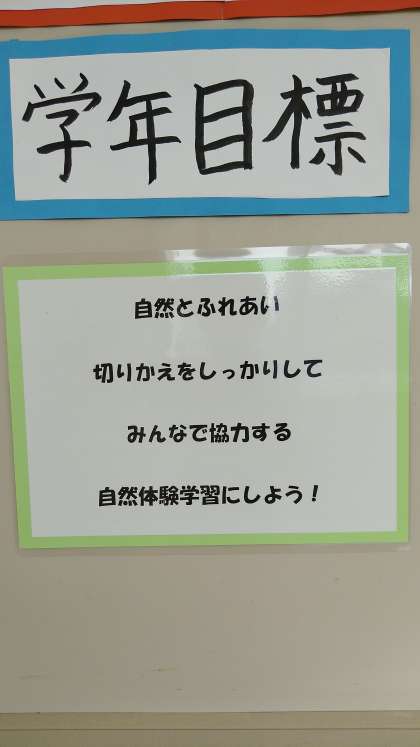 学年目標
自然とふれあい
切りかえをしっかりして
みんなで協力する
自然体験学習にしよう！